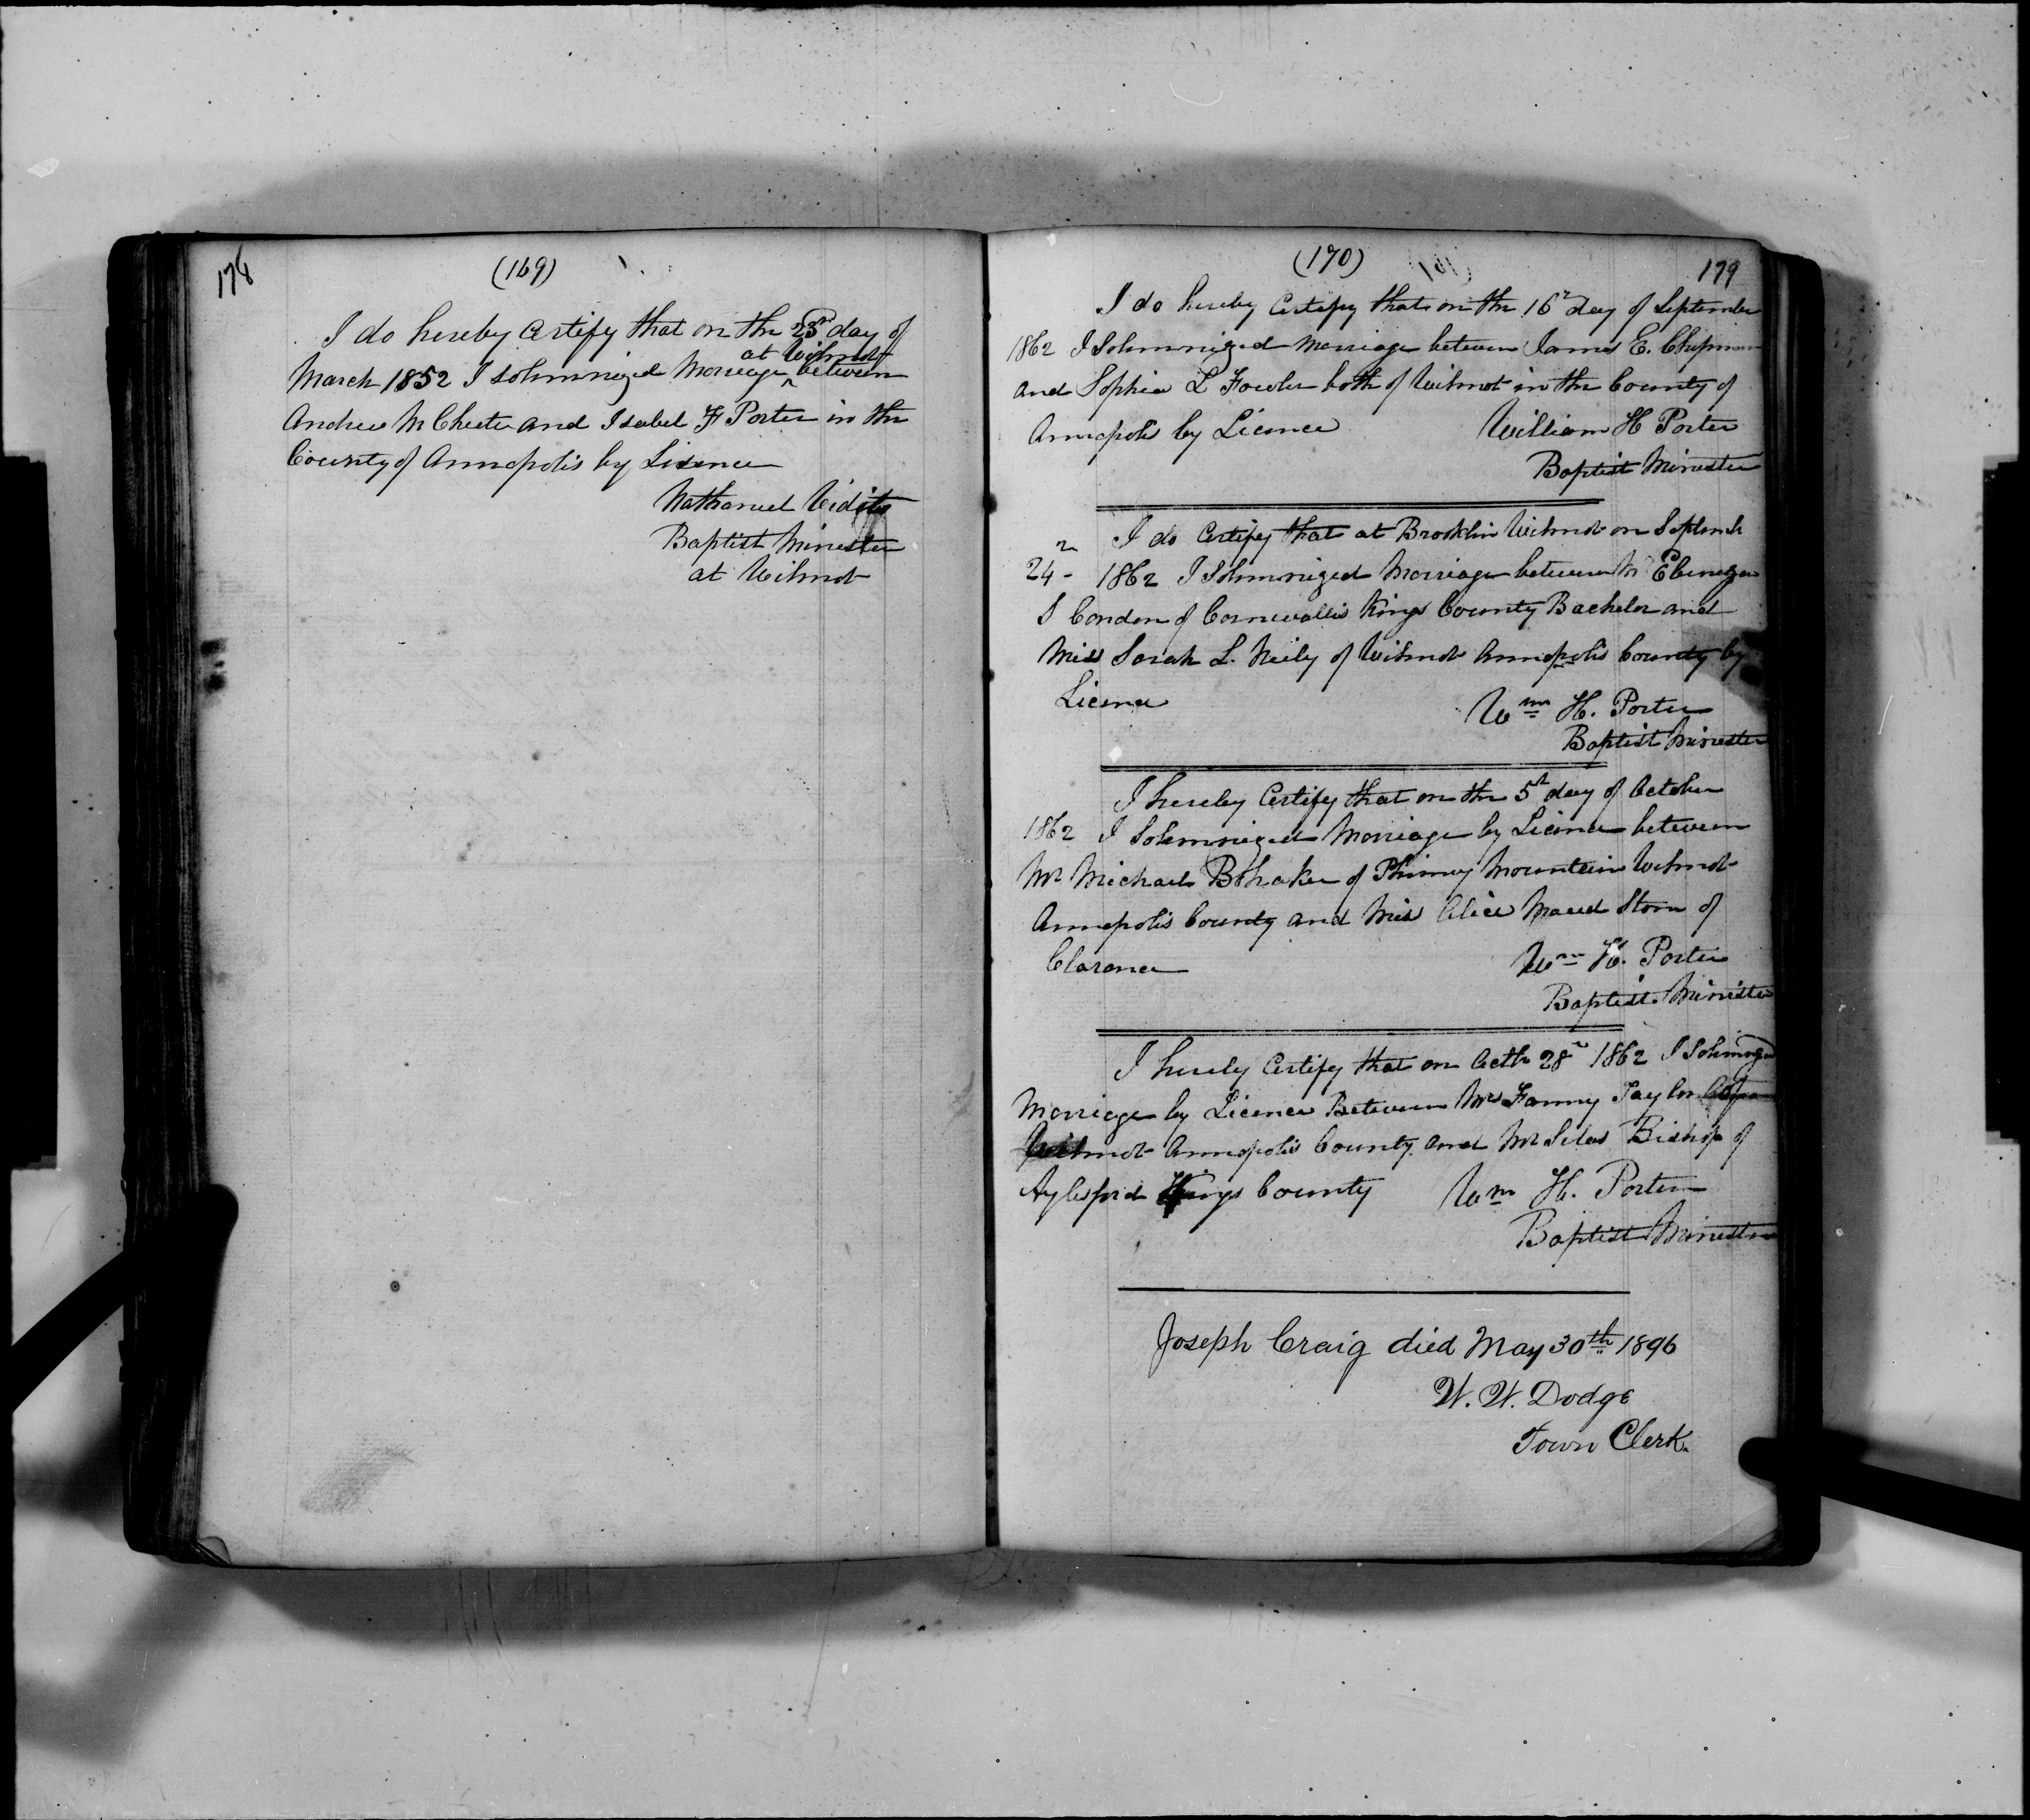 178
(169)
I do hereby Certify that on the 23rd day of
at Wilmot
March 1852 I solemnized Marriage between
Andrew M Chute and Isabel F Porter in the
County of Annapolis by Lisence
Nathaniel Vidito
Baptist Minister
at Wilmot
(170)
179
I do hereby Certify that on the 16th day of September
1862 I Solemnized Marriage between James E. Chipman
and Sophia L Fowler both of Wilmot in the County of
Annapolis by Licence
William H Porter
Baptist Minister
I do Certify that at Brooklin Wilmot on Septemb
24th 1862 I Solemnized Marriage between Mr Ebenezer
S Condon of Cornwallis Kings County Bachelor and
Miss Sarah L. Neily of Wilmot Annapolis County by
Licence
Wm H. Porter
Baptist Minister
I hereby Certify that on the 5th day of October
1862 I Solemnized Marriage by Licence between
Mr Michael Bohaker of Phinney Mountain Wilmot
Annapolis County and Miss Alice Maud Stone of
Clarence
Wm H. Porter
Baptist Minister
I hereby Certify that on Octb 28th 1862 I Solemnized
Marriage by Licence Between Mrs Fanny Taylor
Wilmot Annapolis County and Mr Silas Bishop of
Aylesford Kings County
Wm H. Porter
Baptist Minister
Joseph Craig died May 30th 1896
W. W. Dodge
Town Clerk.